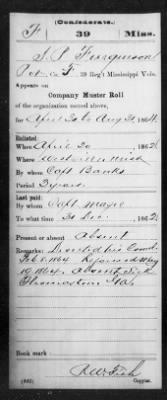 (Confederate.)
F 39 Miss.
Pvt, Co. F, 39 Reg't Mississippi Vols.
Appears on
Company Muster Roll
of the organization named above,
for April 30 to Aug 31, 1864.
Enlisted:
When April 30, 1862
Where
By whom Capt Banks
Period 3 years
Last paid:
By whom Capt
To what time 31 Dec, 186
Present or absent Absent
Remarks: Deserted his Comd
Feb 8, 1864. Rejoined May
19, 1864. Absent sick
Thomaston Ga.
Book mark:
Copyist.